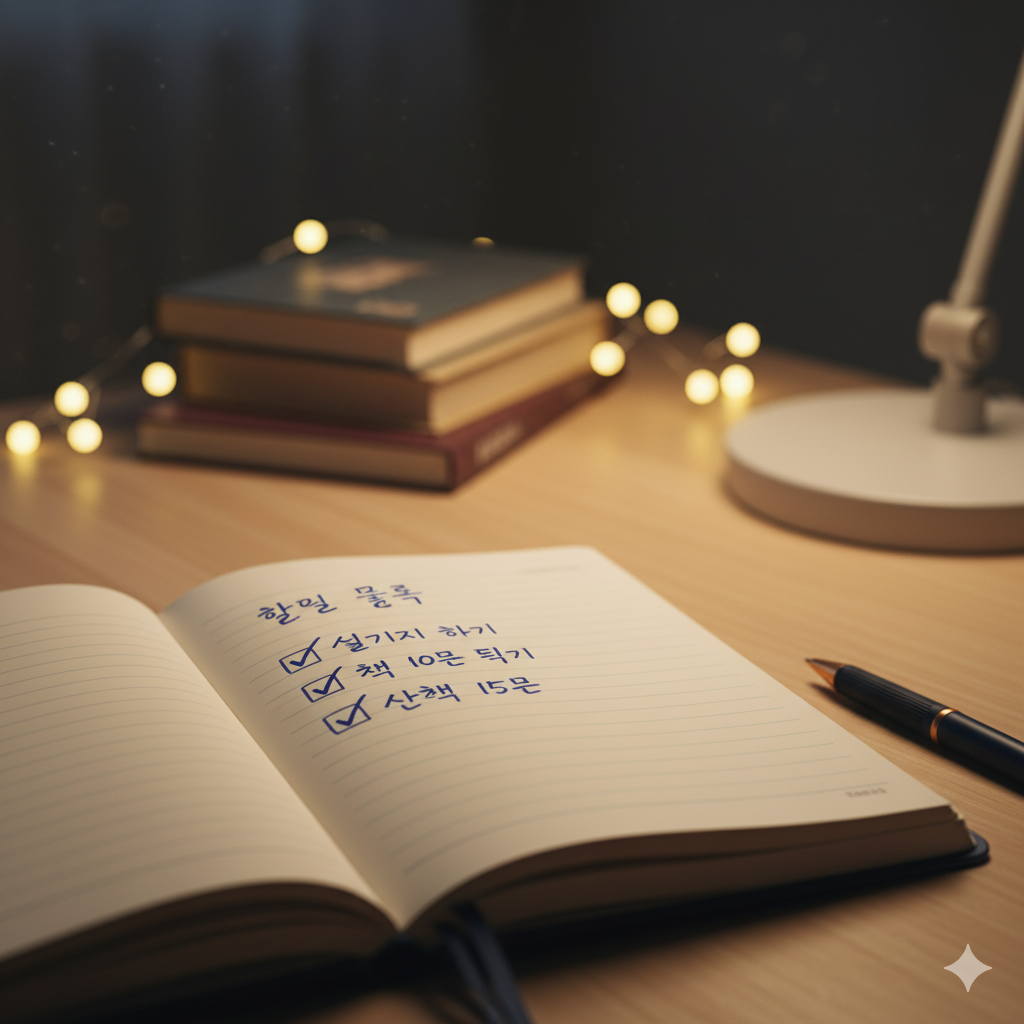 할밀 물록
설기지 하기
책 10문
산책 15문